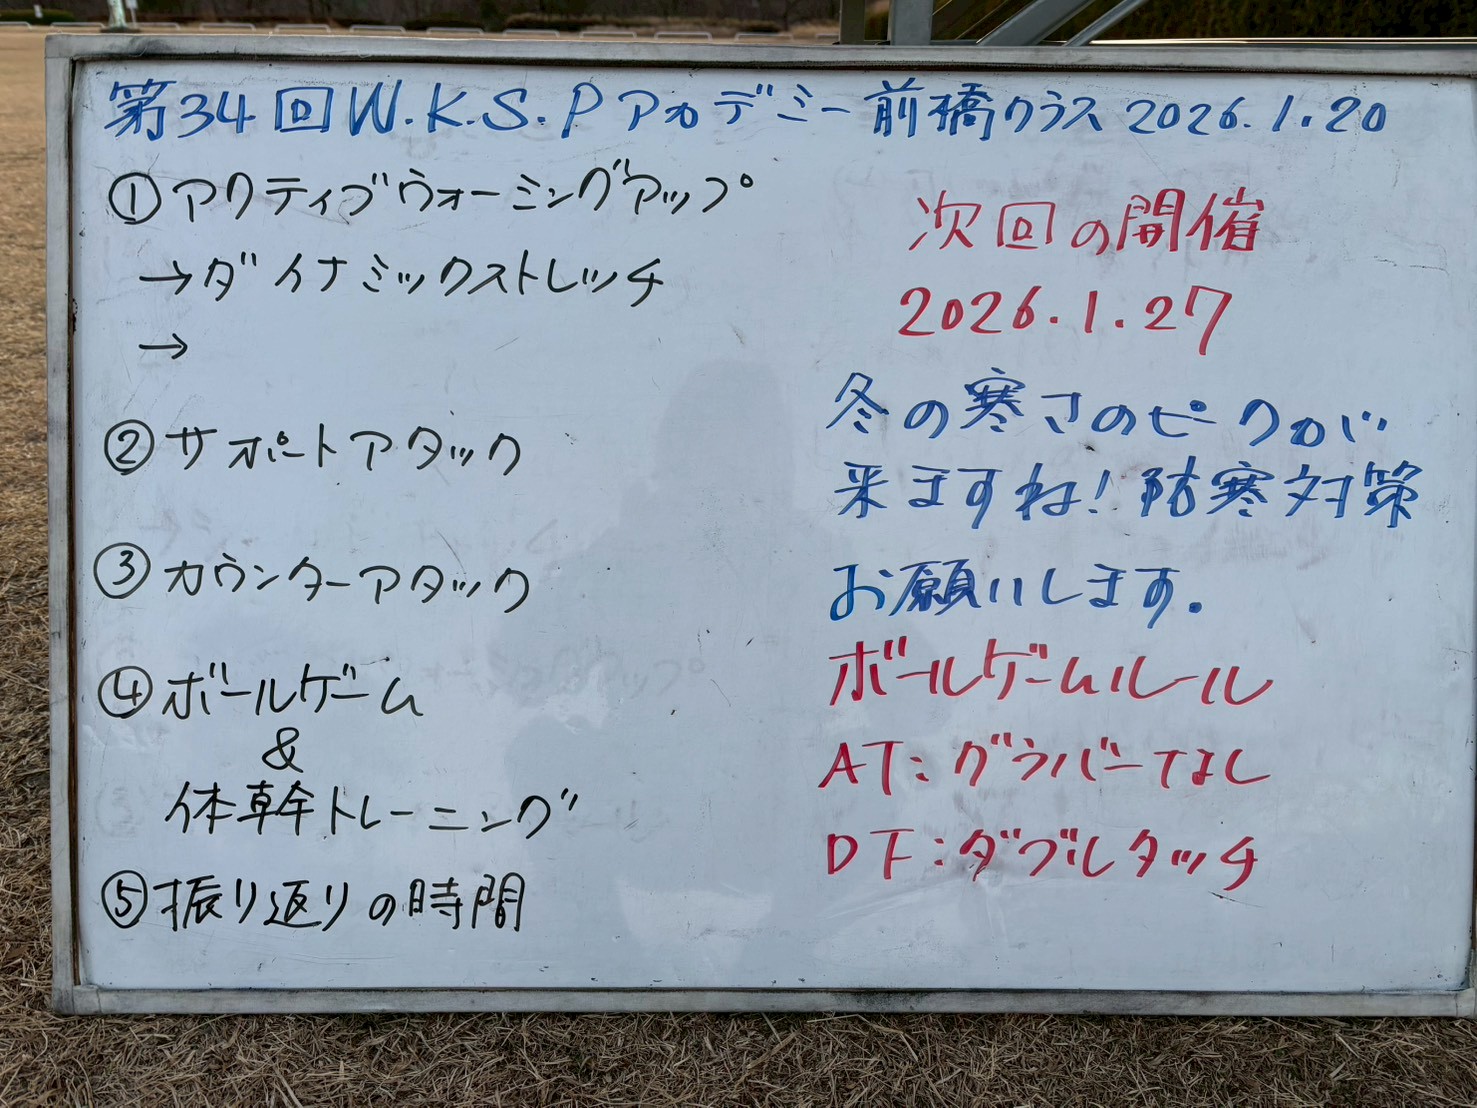 第34回W.K.S.Pアカデミー前橋クラス 2026.1.20
①アクティブウォーミングアップ
→ダイナミックストレッチ
→
②サポートアタック
③カウンターアタック
④ボールゲーム
&
体幹トレーニング
⑤振り返りの時間
次回の開催
2026.1.27
冬の寒さのピークが
来ますね!防寒対策
お願いします.
ボールゲームルール
AT:グラバーなし
DF:ダブルタッチ